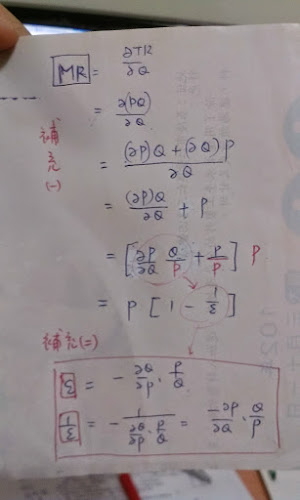 MR = ∂TR/∂Q
= ∂(PQ)/∂Q
補充(一)
= (∂P)Q + (∂Q)P / ∂Q
= (∂P)Q/∂Q + P
= [∂P/∂Q Q/P + P/P] P
= P [1 - 1/ε]
補充(二)
ε = - ∂Q/∂P · P/Q
1/ε = - 1/(∂Q/∂P · P/Q) = -∂P/∂Q · Q/P